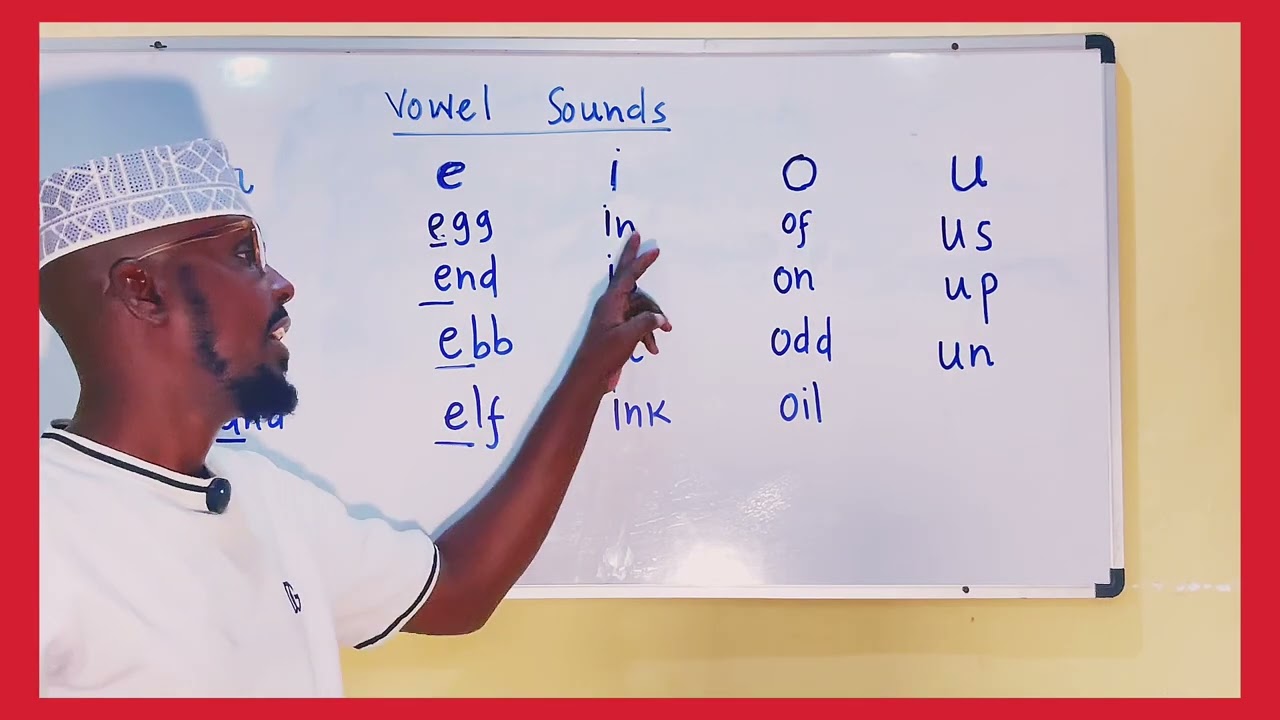 Vowel Sounds
e i o u
egg in of us
end on up
ebb odd un
and elf ink oil